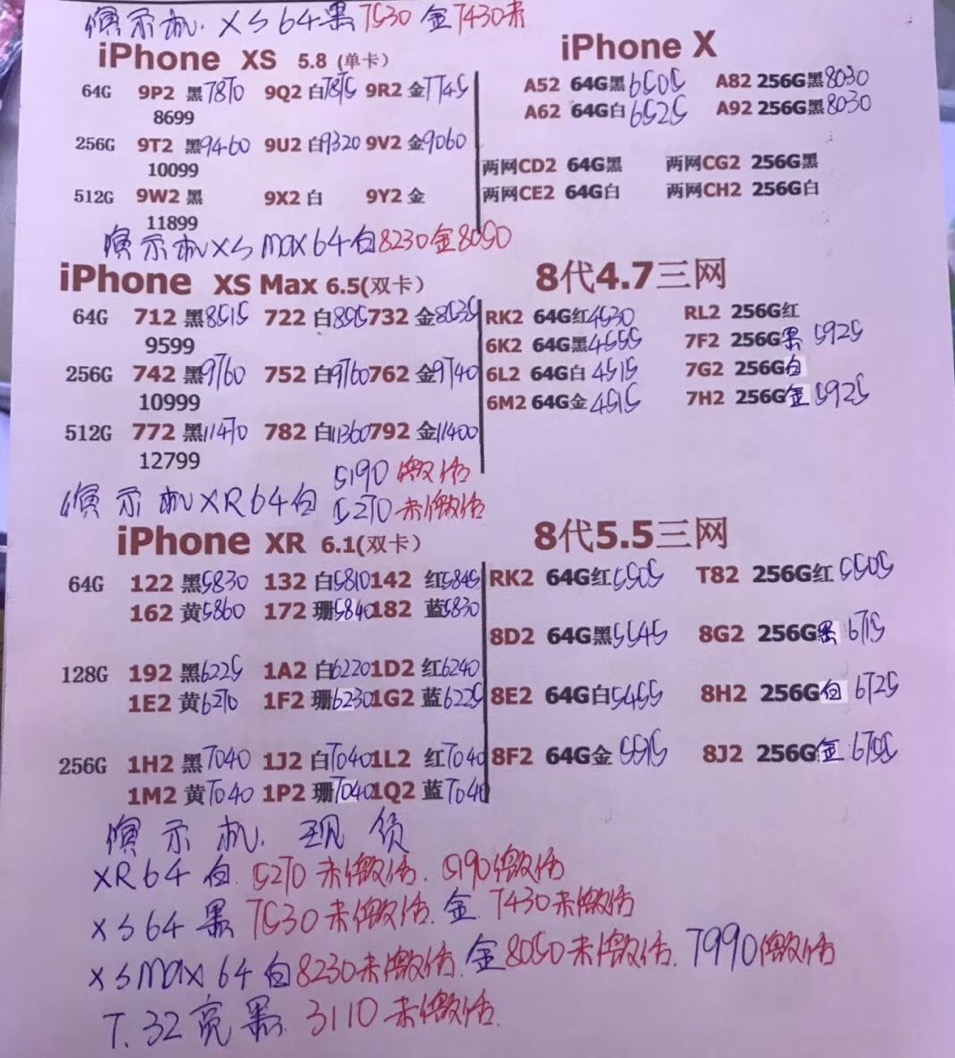 演示机. XS 64黑7530 金7430未
iPhone XS 5.8 (单卡)
64G 9P2 黑7870 9Q2 白7875 9R2 金7745
8699
256G 9T2 黑9460 9U2 白9320 9V2 金9060
10099
512G 9W2 黑 9X2 白 9Y2 金
11899
iPhone X
A52 64G黑6505 A82 256G黑8030
A62 64G白6525 A92 256G黑8030
两网CD2 64G黑 两网CG2 256G黑
两网CE2 64G白 两网CH2 256G白
演示机XSmax64白8230金8050
iPhone XS Max 6.5(双卡)
64G 712 黑8515 722 白8515 732 金8535
9599
256G 742 黑9760 752 白9760 762 金9740
10999
512G 772 黑11470 782 白11360 792 金11400
12799
8代4.7三网
RK2 64G红4530 RL2 256G红
6K2 64G黑4555 7F2 256G黑 5925
6L2 64G白 4515 7G2 256G白
6M2 64G金4515 7H2 256G金 5925
5190 激活
演示机XR64白 5270 未激活
iPhone XR 6.1(双卡)
64G 122 黑5830 132 白5810 142 红5845
162 黄5860 172 珊5840 182 蓝5830
128G 192 黑6225 1A2 白6220 1D2 红6240
1E2 黄6270 1F2 珊6230 1G2 蓝6225
256G 1H2 黑7040 1J2 白7040 1L2 红7040
1M2 黄7040 1P2 珊7040 1Q2 蓝7040
8代5.5三网
RK2 64G红5505 T82 256G红5505
8D2 64G黑5545 8G2 256G黑 6715
8E2 64G白5455 8H2 256G白 6725
8F2 64G金 5515 8J2 256G金 6705
演示机. 现货
XR64白. 5270未激活. 5190激活
XS64黑 7530未激活. 金. 7430未激活
XSmax 64白8230未激活. 金8050未激活. 7990激活
7. 32亮黑. 3110未激活.